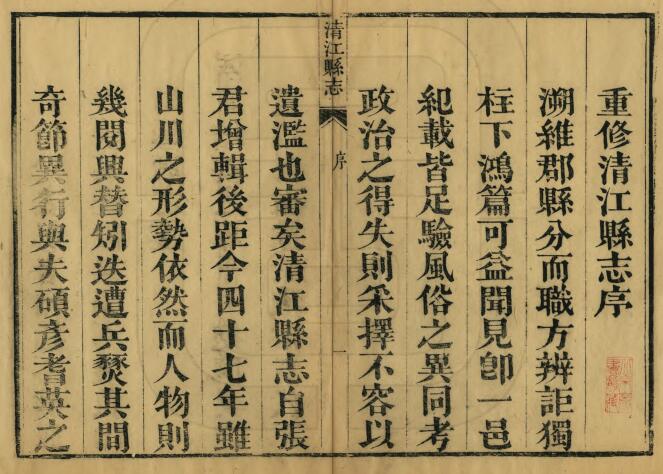 重修清江縣志序
溯維郡縣分而職方辨詎獨
柱下鴻篇可益聞見卽一邑
紀載皆足驗風俗之異同考
政治之得失則采擇不容以
清江縣志
序
一
遺濫也審矣清江縣志自張
君增輯後距今四十七年雖
山川之形勢依然而人物則
幾閱興替矧迭遭兵燹其間
奇節異行與夫碩彥耆英之